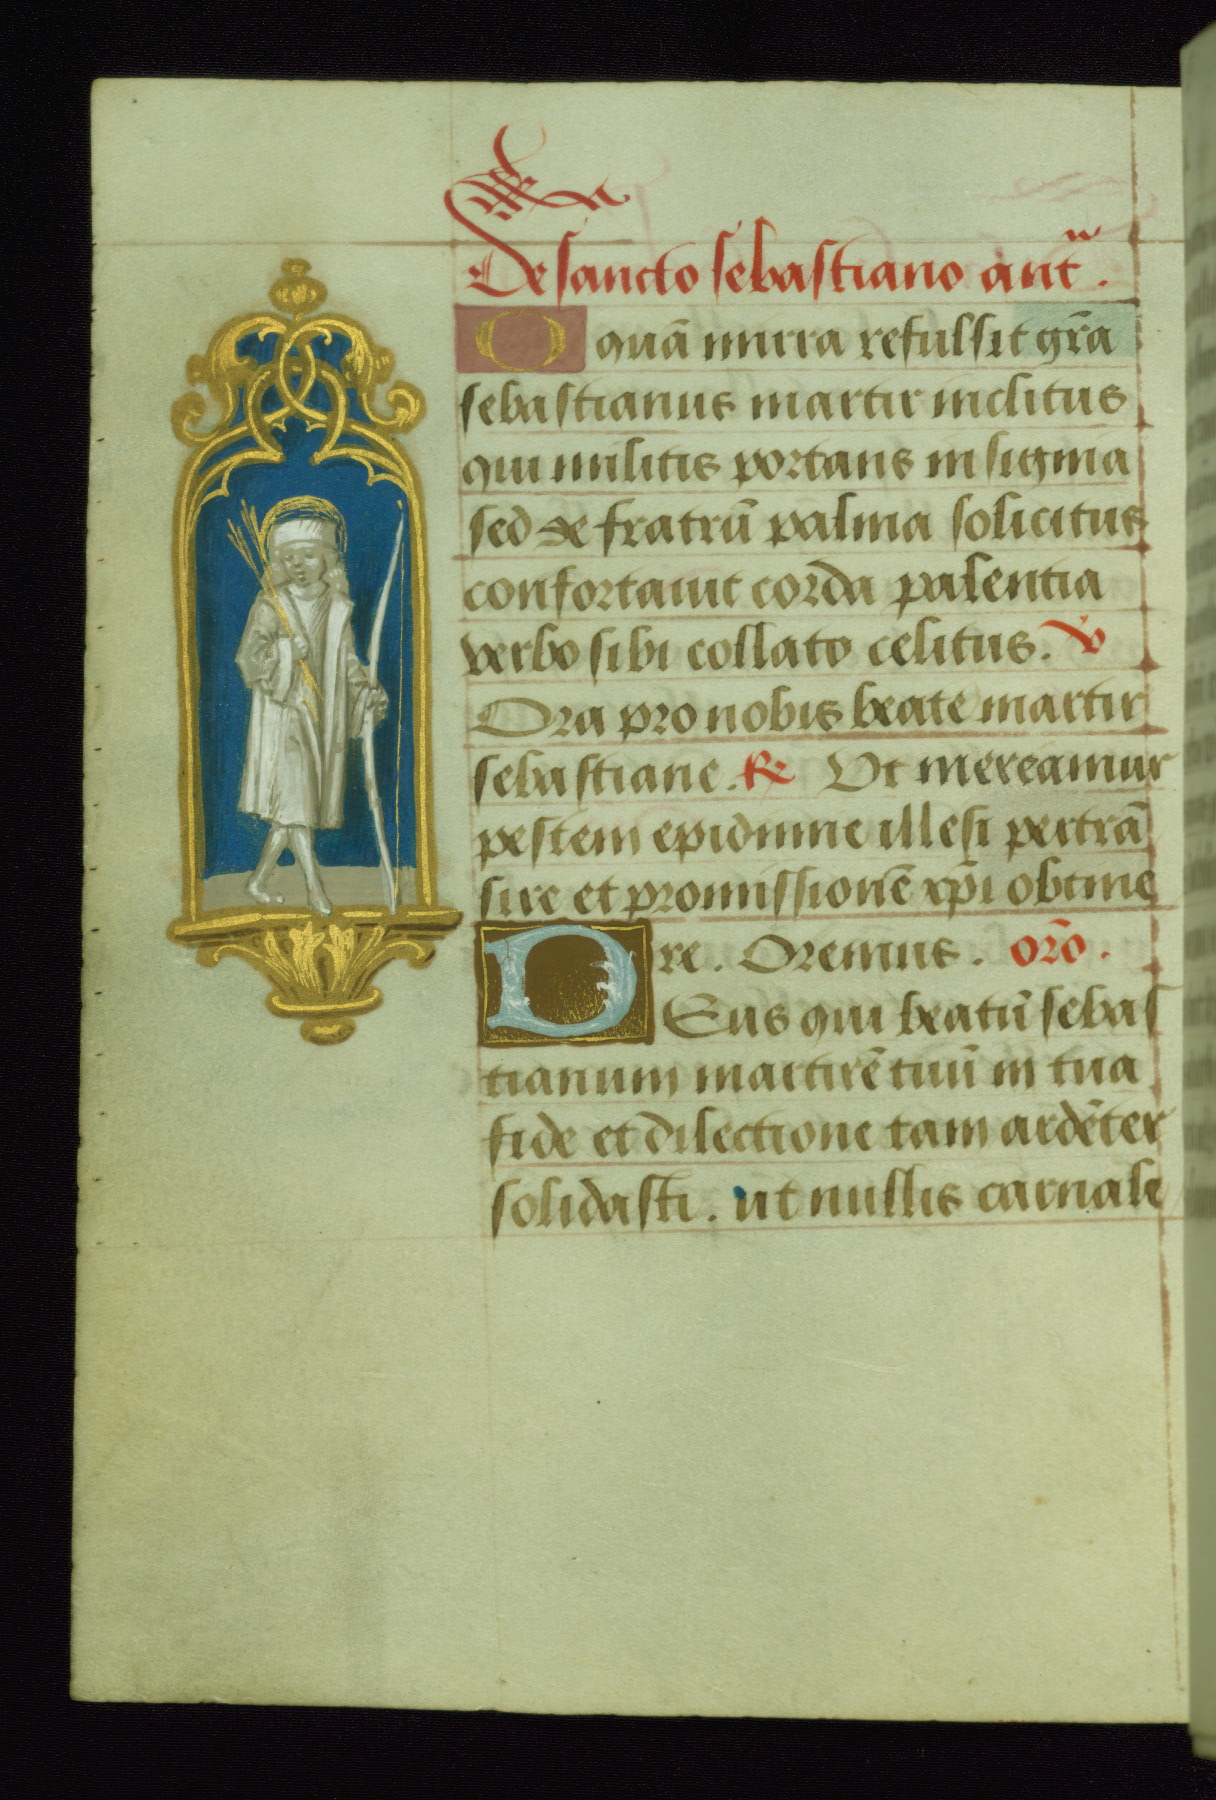 De sancto sebastiano ant̃.
O quā mirra refulsit gr̃a
sebastianus martir inclitus
qui militis portans insignia
sed de fratrū palma solicitus
confortauit corda palentia
verbo sibi collato celitus. ℣
Ora pro nobis beate martir
sebastiane. ℟ Vt mereamur
pestem epidimie illesi pertrā
sire et promissionē xp̄i obtine
re. Oremus. orō.
DEus qui beatū sebas
tianum martirē tuū in tua
fide et dilectione tam ardēter
solidasti. ut nullis carnale